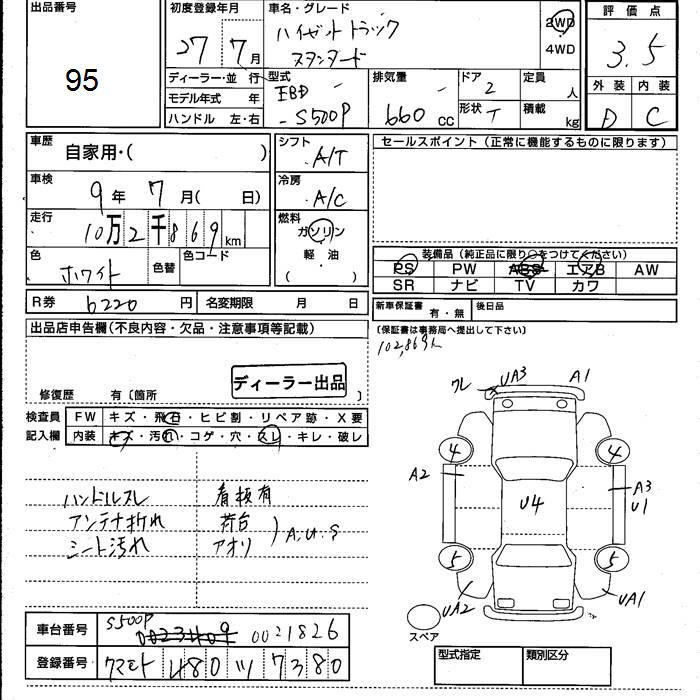 出品番号
95
初度登録年月
27 7月
車名・グレード
ハイゼットトラック
スタンダード
2WD
4WD
評価点
3.5
外装 内装
D C
ディーラー・並行
モデル年式 年
ハンドル 左・右
型式
EBD
-S500P
排気量
660 cc
ドア
2
形状 T
定員
人
積載
kg
車歴
自家用・( )
車検
9年 7月( 日)
走行
10万2千869km
色
ホワイト
色替
色コード
シフト
A/T
冷房
A/C
燃料
ガソリン
軽油
( )
セールスポイント(正常に機能するものに限ります)
装備品(純正品に限り○をつけてください)
PS PW ABS エアB AW
SR ナビ TV カワ
R券 6220 円 名変期限 月 日
新車保証書 有・無 後日品
(保証書は事務局へ提出して下さい)
102,869k
出品店申告欄(不良内容・欠品・注意事項等記載)
ディーラー出品
修復歴 有〔箇所 〕
検査員
記入欄
FW キズ・飛石・ヒビ割・リペア跡・X要
内装 キズ・汚れ・コゲ・穴・スレ・キレ・破レ
ハンドルスレ
アンテナ折れ
シート汚れ
看板有
荷台
アオリ
A.U.S
ワレ
UA3
A1
4
4
A2
U4
A3
U1
5
5
UA2
UA1
スペア
車台番号 S500P
0023409 0021826
登録番号 クマモト 480 ツ 7380
型式指定 類別区分